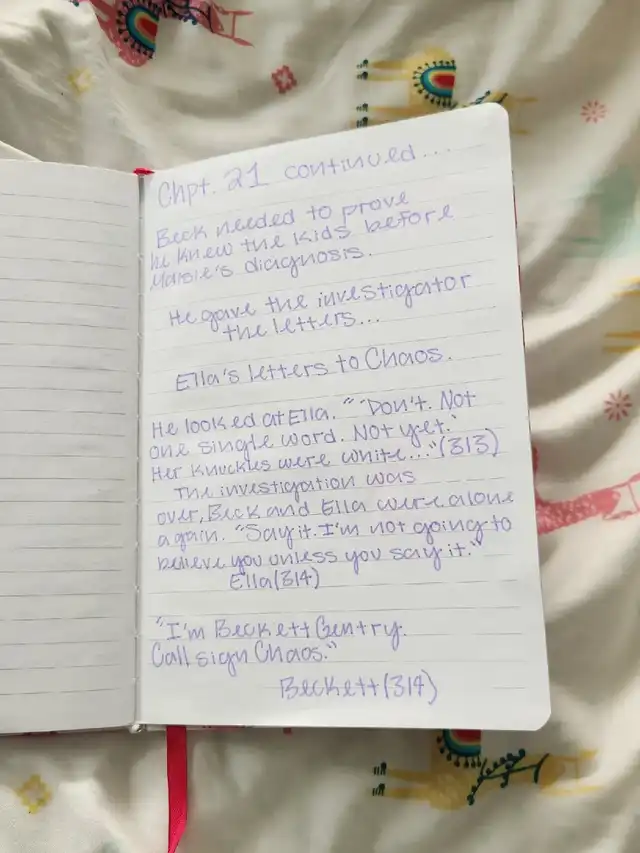 Chpt. 21 continued...
Beck needed to prove
he knew the kids before
Maisie's diagnosis.
He gave the investigator
the letters...
Ella's letters to Chaos.
He looked at Ella. "'Don't. Not
one single word. Not yet.'
Her knuckles were white..."(313)
The investigation was
over, Beck and Ella were alone
again. "Say it. I'm not going to
believe you unless you say it."
Ella(314)
"I'm Beckett Gentry.
Call sign Chaos."
Beckett(314)